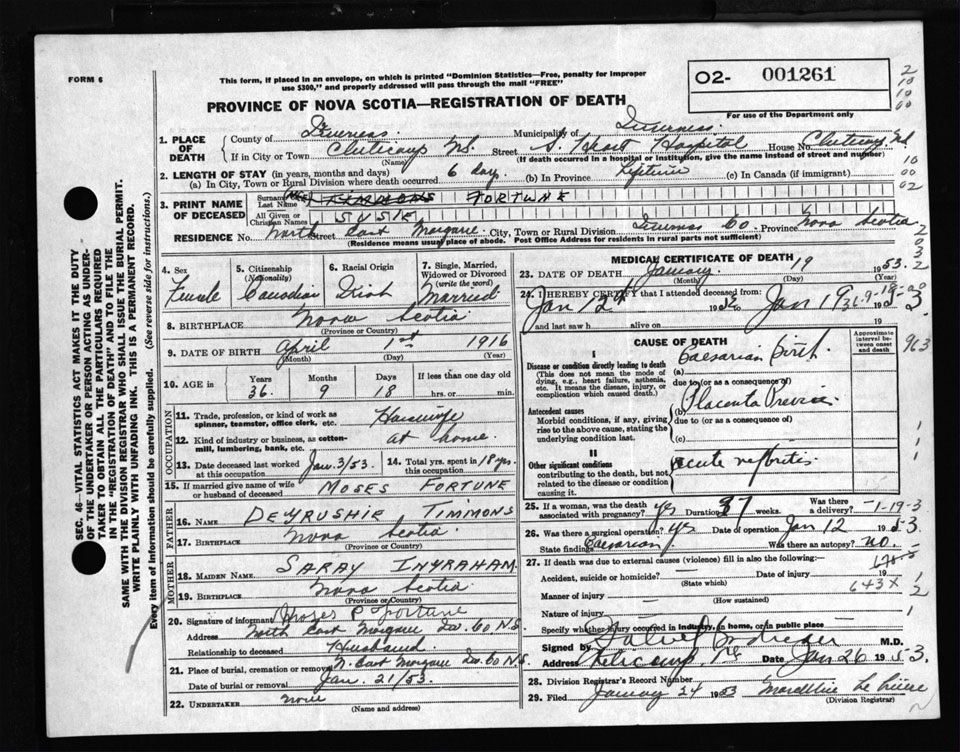 FORM 6
This form, if placed in an envelope, on which is printed "Dominion Statistics—Free, penalty for improper
use $300," and properly addressed will pass through the mail "FREE"
O2- 001261
For use of the Department only
PROVINCE OF NOVA SCOTIA—REGISTRATION OF DEATH
1. PLACE OF DEATH
County of Inverness. Municipality of Inverness.
If in City or Town Cheticamp NS. Street S. Heart Hospital House No. Cheticamp NS
(Name) (If death occurred in a hospital or institution, give the name instead of street and number)
2. LENGTH OF STAY (in years, months and days)
(a) In City, Town or Rural Division where death occurred 6 days. (b) In Province Lifetime (c) In Canada (if immigrant)
3. PRINT NAME OF DECEASED
Surname or Last Name FORTUNE
All Given or Christian Names SUSIE
RESIDENCE No. Street North East Margaree City, Town or Rural Division Inverness Co Province Nova Scotia
(Residence means usual place of abode. Post Office Address for residents in rural parts not sufficient)
4. Sex Female
5. Citizenship (Nationality) Canadian
6. Racial Origin Irish
7. Single, Married, Widowed or Divorced (write the word) Married
8. BIRTHPLACE Nova Scotia
(Province or Country)
9. DATE OF BIRTH April 1st 1916
(Month) (Day) (Year)
10. AGE in Years 36. Months 9 Days 18 If less than one day old hrs. or min.
OCCUPATION
11. Trade, profession, or kind of work as spinner, teamster, office clerk, etc. Housewife
12. Kind of industry or business, as cotton-mill, lumbering, bank, etc. at home.
13. Date deceased last worked at this occupation Jan. 3/53.
14. Total yrs. spent in this occupation 18 yrs.
15. If married give name of wife or husband of deceased MOSES FORTUNE
FATHER
16. Name DEYRUSHIE TIMMONS
17. Birthplace Nova Scotia
(Province or Country)
MOTHER
18. Maiden Name SARAY INYRAHAM
19. Birthplace Nova Scotia
(Province or Country)
20. Signature of informant Moses P Fortune
Address North East Margaree Inv. Co N.S.
Relationship to deceased Husband.
21. Place of burial, cremation or removal N. East Margaree Inv. Co N.S.
Date of burial or removal Jan. 21/53.
22. UNDERTAKER None
(Name and address)
MEDICAL CERTIFICATE OF DEATH
23. DATE OF DEATH January 19 1953.
(Month) (Day)
24. I HEREBY CERTIFY that I attended deceased from:
Jan 12th 19 to Jan 19 195 3.
and last saw h alive on 19
CAUSE OF DEATH
Approximate interval between onset and death
I
Disease or condition directly leading to death
(This does not mean the mode of dying, e.g., heart failure, asthenia, etc. It means the disease, injury, or complication which caused death.)
(a) Caesarian Birth.
due to (or as a consequence of)
Antecedent causes
Morbid conditions, if any, giving rise to the above cause, stating the underlying condition last.
(b) Placenta Previa.
due to (or as a consequence of)
(c)
II
Other significant conditions
contributing to the death, but not related to the disease or condition causing it.
acute nephritis.
25. If a woman, was the death associated with pregnancy? yes Duration 37 weeks. Was there a delivery?
26. Was there a surgical operation? yes Date of operation Jan 12 1953.
State findings Caesarian Was there an autopsy? no.
27. If death was due to external causes (violence) fill in also the following:
Accident, suicide or homicide? Date of injury 19
(State which)
Manner of injury 643X
(How sustained)
Nature of injury
Specify whether injury occurred in industry, in home, or in public place
Signed by M.D.
Address Cheticamp, Date Jan 26 1953.
28. Division Registrar's Record Number
29. Filed January 24 1953
(Division Registrar)
SEC. 46—VITAL STATISTICS ACT MAKES IT THE DUTY
OF THE UNDERTAKER OR PERSON ACTING AS UNDER-
TAKER TO OBTAIN ALL THE PARTICULARS REQUIRED
IN THE "REGISTRATION OF DEATH" AND TO FILE THE
SAME WITH THE DIVISION REGISTRAR WHO SHALL ISSUE THE BURIAL PERMIT.
WRITE PLAINLY WITH UNFADING INK. THIS IS A PERMANENT RECORD.
Every item of information should be carefully supplied. (See reverse side for instructions.)